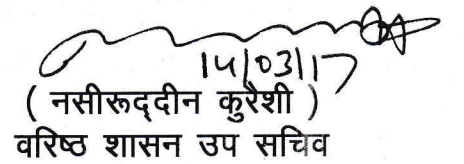 14/03/17
( नसीरूद्दीन कुरैशी )
वरिष्ठ शासन उप सचिव